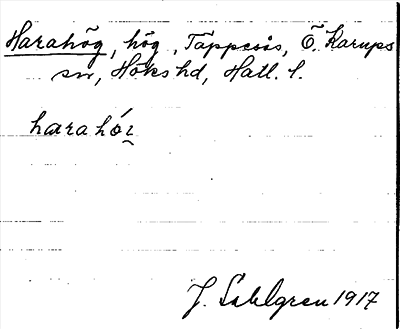 Harahög, hög, Täppesås, Ö. Karups
sn, Höks hd, Hall. l.
harahó
J. Sahlgren 1917